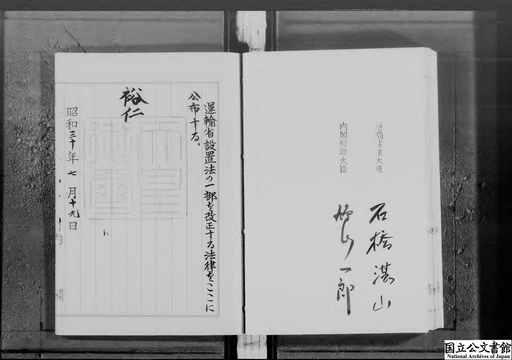 通商産業大臣
石橋湛山
内閣総理大臣
鳩山一郎
運輸省設置法の一部を改正する法律をここに
公布する。
裕仁
天皇
御璽
昭和三十年七月十九日
国立公文書館
National Archives of Japan